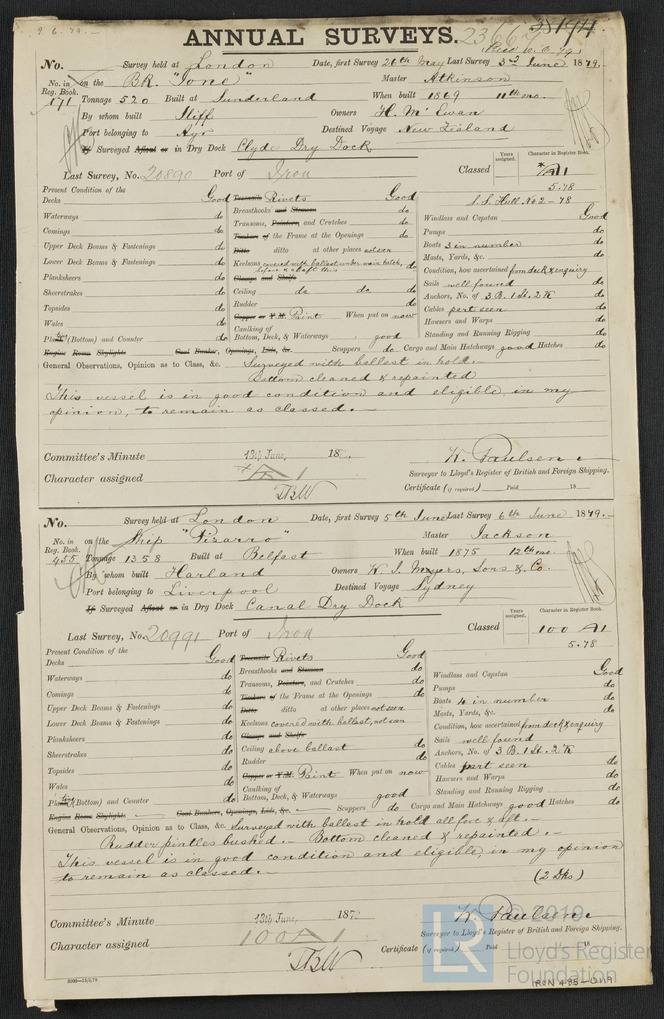 2.6.79.-
ANNUAL SURVEYS.
No. Survey held at London Date, first Survey 26th May Last Survey 3rd June 1879.
No. in Reg. Book. on the BK. "Ione" Master Atkinson
171 Tonnage 520 Built at Sunderland When built 1869 11th mo.
By whom built Iliff Owners H. McEwan
Port belonging to Ayr Destined Voyage New Zealand
If Surveyed Afloat or in Dry Dock Clyde Dry Dock
Years assigned. Character in Register Book.
Last Survey, No. 20890 Port of Iron Classed *A1
5.78
Present Condition of the S.S. Hull. No 2-78
Decks Good Treenails Rivets Good
Waterways do Breasthooks and Stemson do Windlass and Capstan Good
Comings do Transoms, Pointers, and Crutches do Pumps do
Upper Deck Beams & Fastenings do Timbers of the Frame at the Openings do Boats 3 in number do
Ditto ditto at other places not seen Masts, Yards, &c. do
Lower Deck Beams & Fastenings do Keelsons covered with ballast, under main hatch, before & abaft this do Condition, how ascertained from deck & enquiry
Planksheers do Clamps and Shelfs Sails well found do
Sheerstrakes do Ceiling do do do Anchors, No. of 3 B. 1 St. 2 K do
Topsides do Rudder do Cables part seen do
Wales do Copper or Y.M. Paint When put on now Hawsers and Warps do
Plating (Bottom) and Counter do Caulking of Bottom, Deck, & Waterways good Standing and Running Rigging do
Engine Room Skylights Coal Bunker, Openings, Lids, &c. Scuppers do Cargo and Main Hatchways good Hatches do
General Observations, Opinion as to Class, &c. Surveyed with ballast in hold.-
Bottom cleaned & repainted
This vessel is in good condition and eligible, in my
opinion, to remain as classed.-
Committee's Minute 13th June, 187 W. Paulsen
Character assigned *A1 Surveyor to Lloyd's Register of British and Foreign Shipping.
TBW Certificate (if required) Paid 18
No. Survey held at London Date, first Survey 5th June Last Survey 6th June 1879.-
No. in Reg. Book. on the Ship "Pizarro" Master Jackson
455 Tonnage 1358 Built at Belfast When built 1875 12th mo.
By whom built Harland Owners W. J. Myers, Sons & Co.
Port belonging to Liverpool Destined Voyage Sydney
If Surveyed Afloat or in Dry Dock Canal Dry Dock
Years assigned. Character in Register Book.
Last Survey, No. 20991 Port of Iron Classed 100 A1
5.78
Present Condition of the
Decks Good Treenails Rivets Good
Waterways do Breasthooks and Stemson do Windlass and Capstan Good
Comings do Transoms, Pointers, and Crutches do Pumps do
Timbers of the Frame at the Openings do Boats 4 in number do
Upper Deck Beams & Fastenings do Ditto ditto at other places not seen Masts, Yards, &c. do
Lower Deck Beams & Fastenings do Keelsons covered with ballast, not seen Condition, how ascertained from deck & enquiry
Planksheers do Clamps and Shelfs Sails well found do
Sheerstrakes do Ceiling above ballast do Anchors, No. of 3 B. 1 St. 2 K do
Topsides do Rudder do Cables part seen do
Wales do Copper or Y.M. Paint When put on now Hawsers and Warps do
Plating (Bottom) and Counter do Caulking of Bottom, Deck, & Waterways good Standing and Running Rigging do
Engine Room Skylights Coal Bunkers, Openings, Lids, &c. Scuppers do Cargo and Main Hatchways good Hatches do
General Observations, Opinion as to Class, &c. Surveyed with ballast in hold all fore & aft.-
Rudder pintles bushed.- Bottom cleaned & repainted.-
This vessel is in good condition and eligible, in my opinion
to remain as classed.-
(2 Dks)
Committee's Minute 13th June, 187 W. Paulsen
Character assigned 100 A1 Surveyor to Lloyd's Register of British and Foreign Shipping.
TBW Certificate (if required) Paid 18
© 2019
LR
Lloyd's Register
Foundation
IRON 495-0119